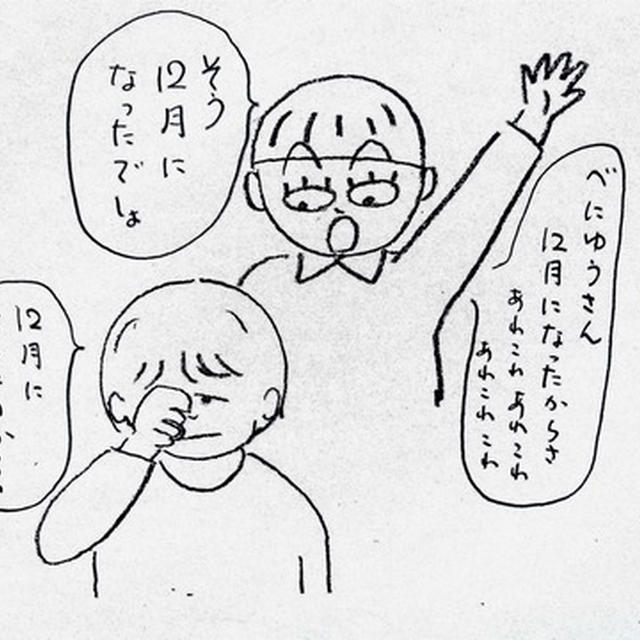 べにゆうさん
12月になったからさ
あれこれあれこれ
あれこれこれ
そう
12月に
なったでしょ
12月に